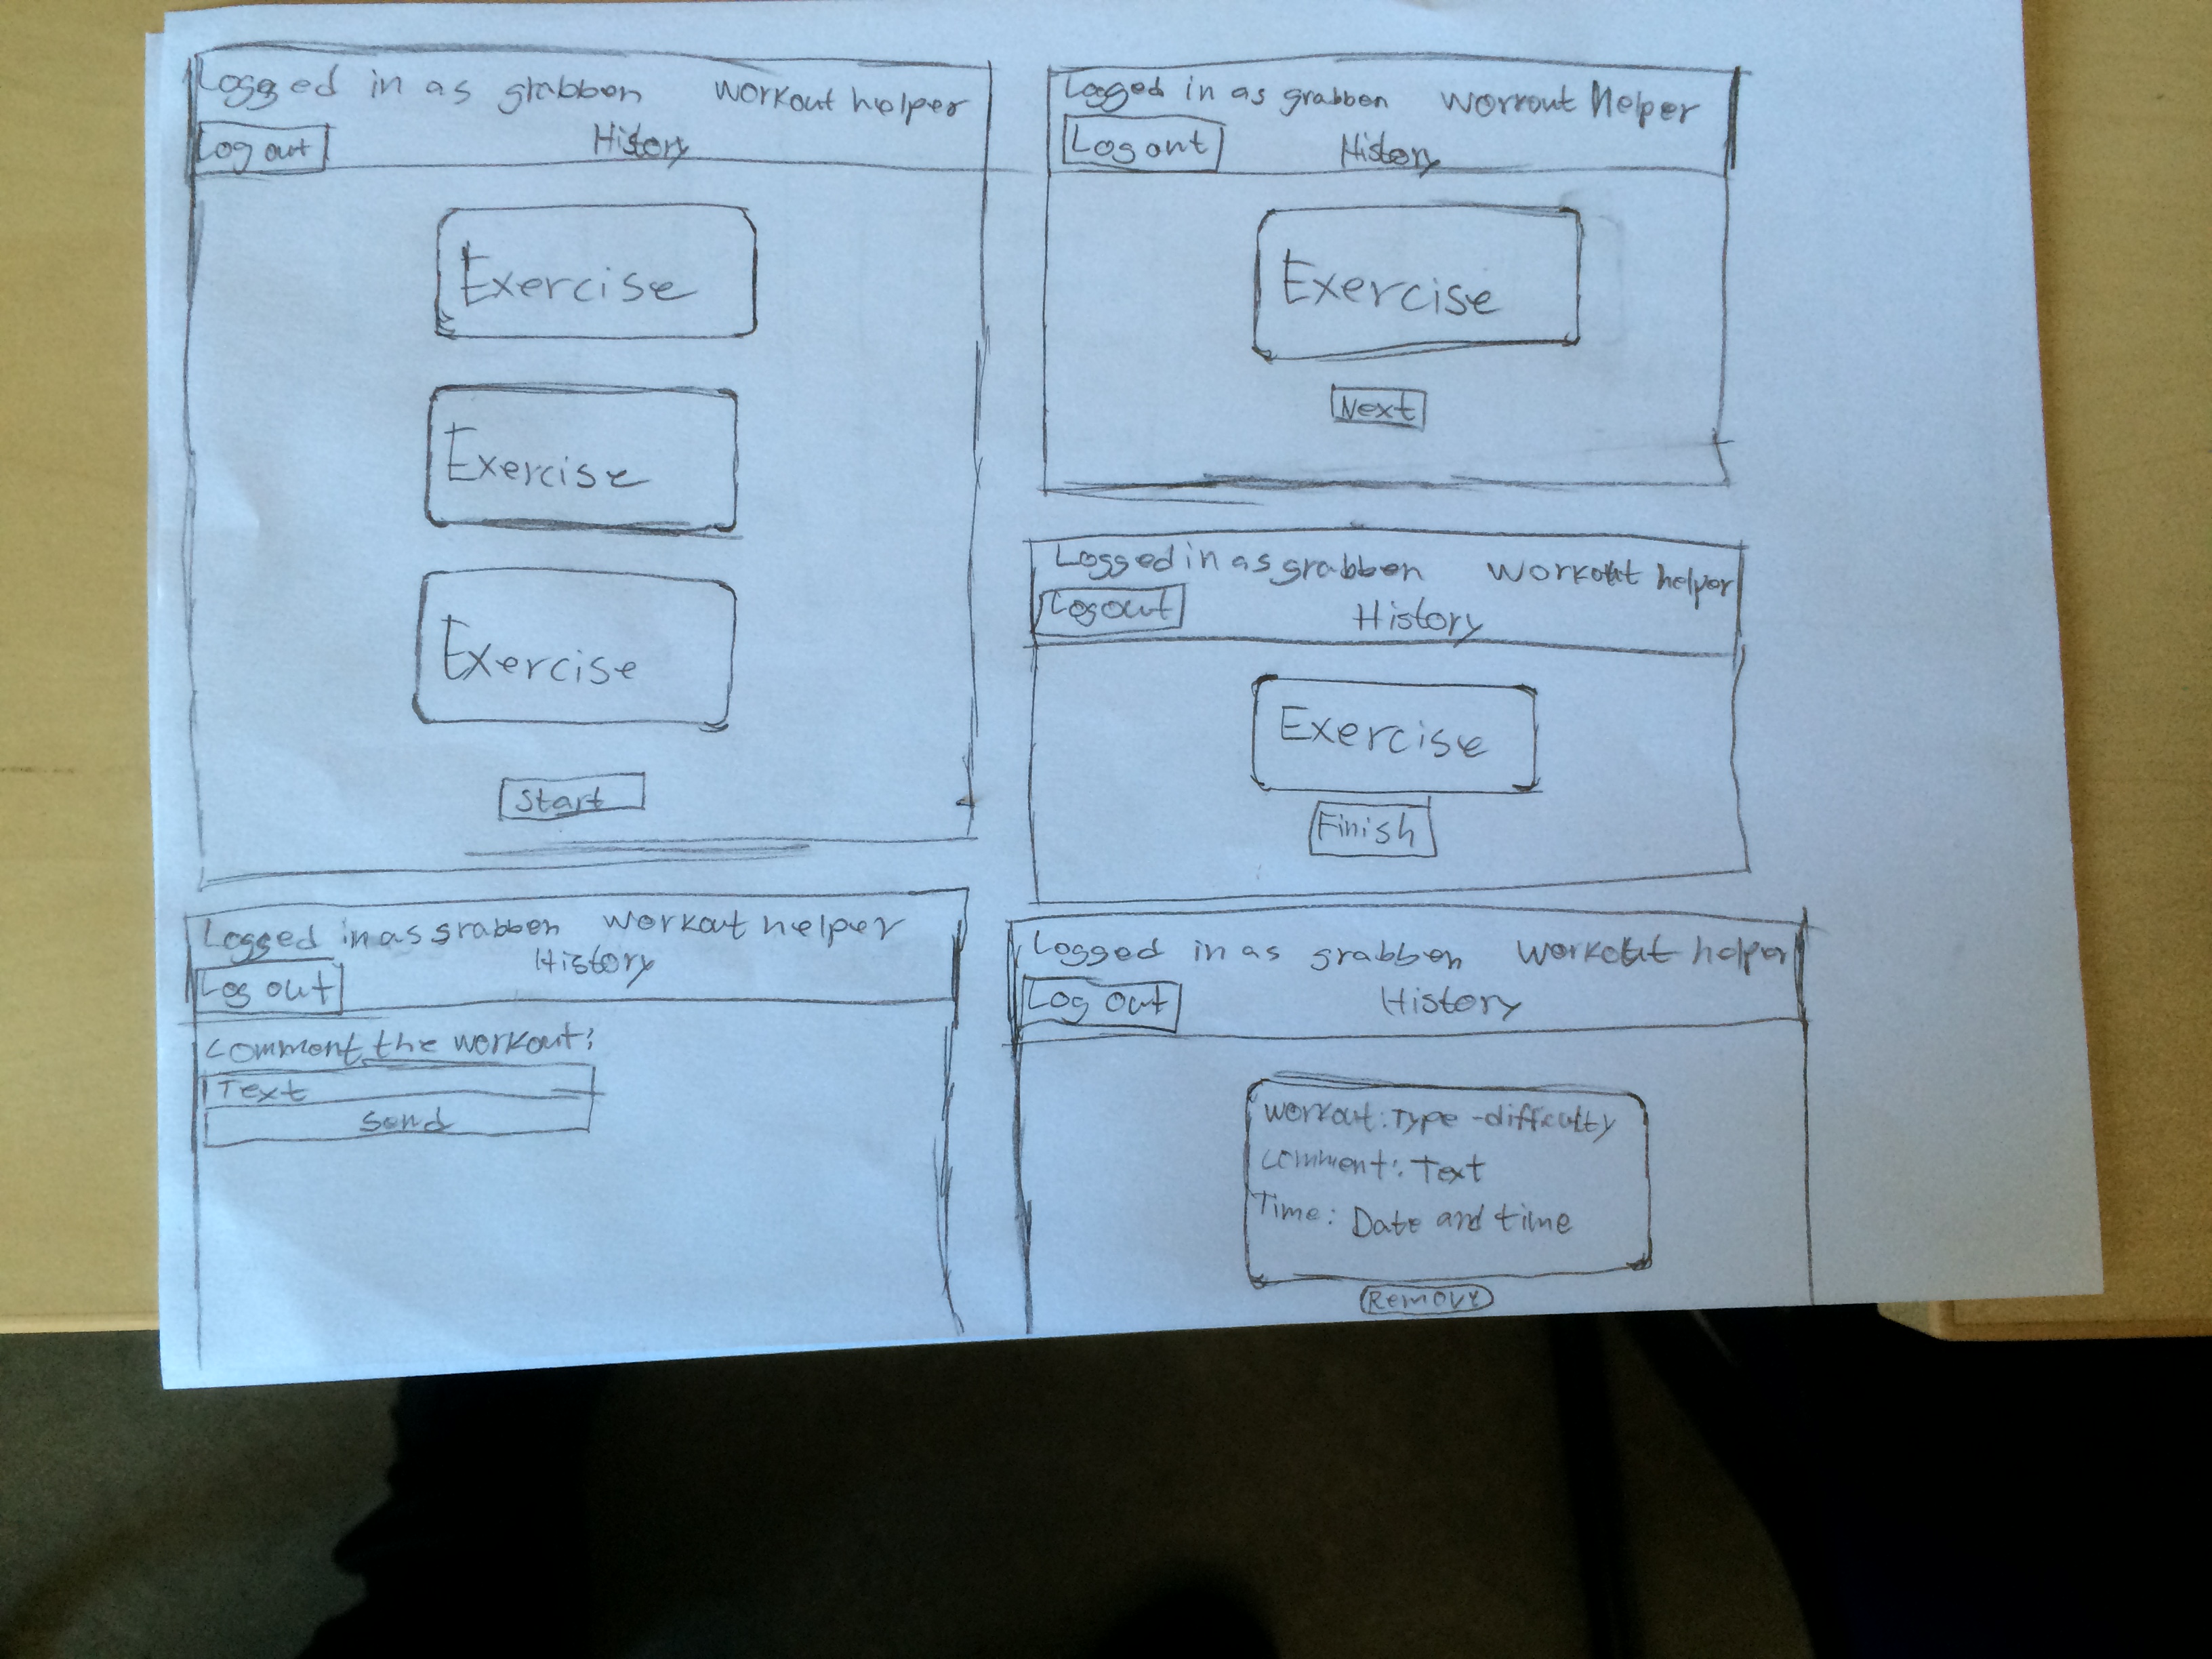 Logged in as grabben workout helper
Log out History
Exercise
Exercise
Exercise
Start
Logged in as grabben workout helper
Log out History
Exercise
Next
Logged in as grabben workout helper
Logout History
Exercise
Finish
Logged in as grabben workout helper
History
Log out
Comment the workout:
Text
Send
Logged in as grabben workout helper
Log Out History
Workout: Type - difficulty
Comment: Text
Time: Date and time
Remove